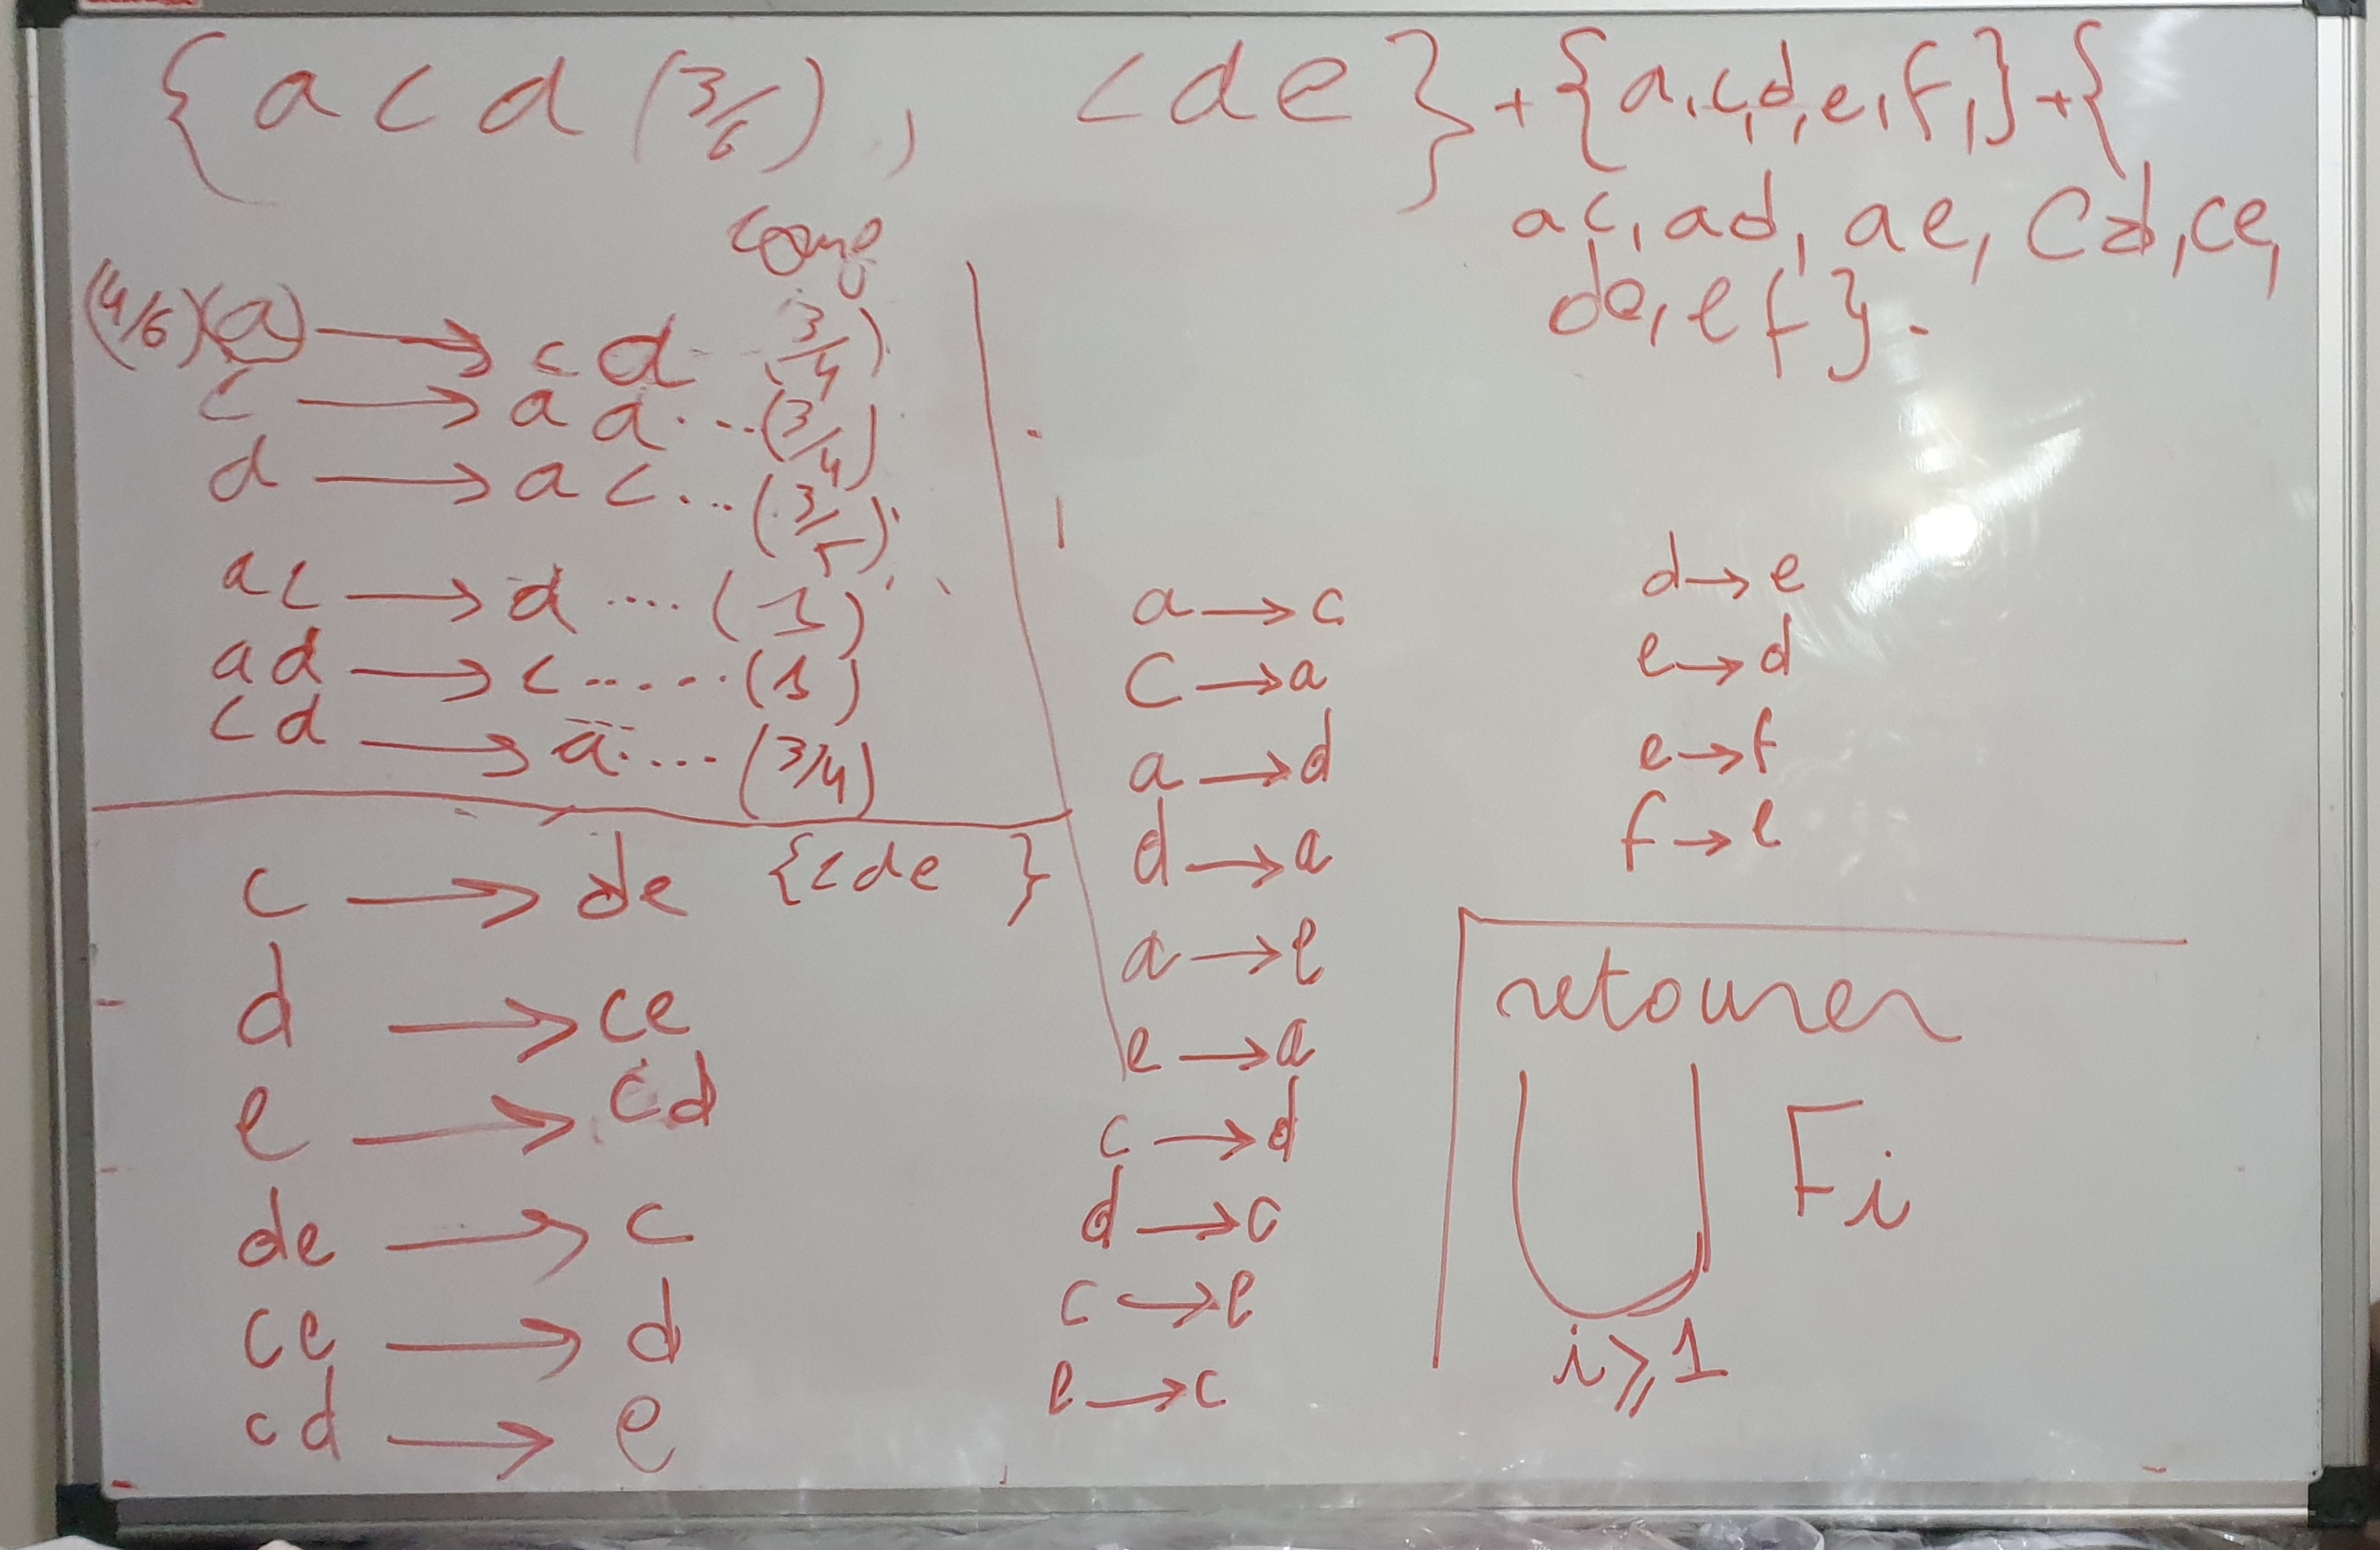 { a c d (3/6) , c d e } + { a, c, d, e, f, } + {
ac, ad, ae, cd, ce,
de, ef }.
conf
(4/6) (a) → cd (3/4)
c → ad ... (3/4)
d → ac ... (3/5)
ac → d .... (1)
ad → c ...... (1)
cd → a .... (3/4)
c → de {cde }
d → ce
e → cd
de → c
ce → d
cd → e
a → c
c → a
a → d
d → a
a → e
e → a
c → d
d → c
c → e
e → c
d → e
e → d
e → f
f → e
retourner
⋃ Fi
i ⩾ 1